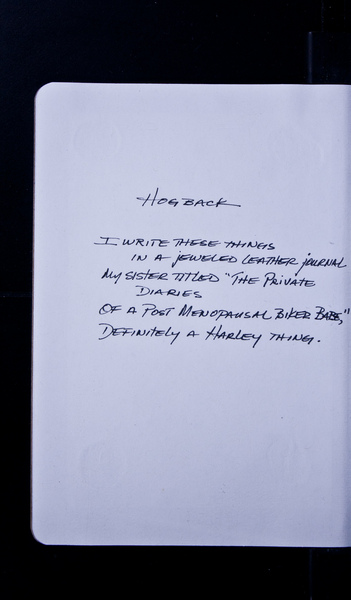 HOGBACK
I WRITE THESE THINGS
IN A JEWELED LEATHER JOURNAL
MY SISTER TITLED "THE PRIVATE
DIARIES
OF A POST MENOPAUSAL BIKER BABE,"
DEFINITELY A HARLEY THING.